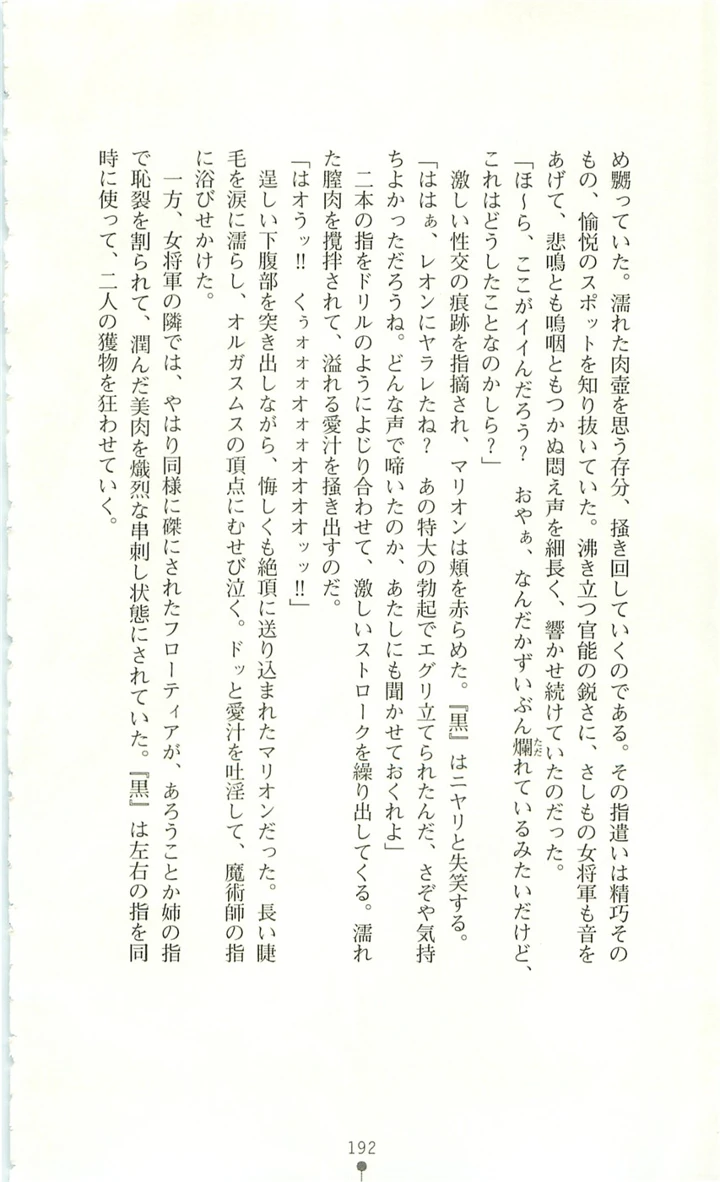 め嬲っていた。濡れた肉壺を思う存分、掻き回していくのである。その指遣いは精巧その
もの、愉悦のスポットを知り抜いていた。沸き立つ官能の鋭さに、さしもの女将軍も音を
あげて、悲鳴とも嗚咽ともつかぬ悶え声を細長く、響かせ続けていたのだった。
「ほ〜ら、ここがイイんだろう？　おやぁ、なんだかずいぶん爛れているみたいだけど、
ただ
これはどうしたことなのかしら？」
　激しい性交の痕跡を指摘され、マリオンは頬を赤らめた。『黒』はニヤリと失笑する。
「ははぁ、レオンにヤラレたね？　あの特大の勃起でエグリ立てられたんだ、さぞや気持
ちよかっただろうね。どんな声で啼いたのか、あたしにも聞かせておくれよ」
　二本の指をドリルのようによじり合わせて、激しいストロークを繰り出してくる。濡れ
た膣肉を攪拌されて、溢れる愛汁を掻き出すのだ。
「はオうッ‼　くぅォォォオォォオオオオッッ‼」
　逞しい下腹部を突き出しながら、悔しくも絶頂に送り込まれたマリオンだった。長い睫
毛を涙に濡らし、オルガスムスの頂点にむせび泣く。ドッと愛汁を吐淫して、魔術師の指
に浴びせかけた。
　一方、女将軍の隣では、やはり同様に磔にされたフローティアが、あろうことか姉の指
で恥裂を割られて、潤んだ美肉を熾烈な串刺し状態にされていた。『黒』は左右の指を同
時に使って、二人の獲物を狂わせていく。
192